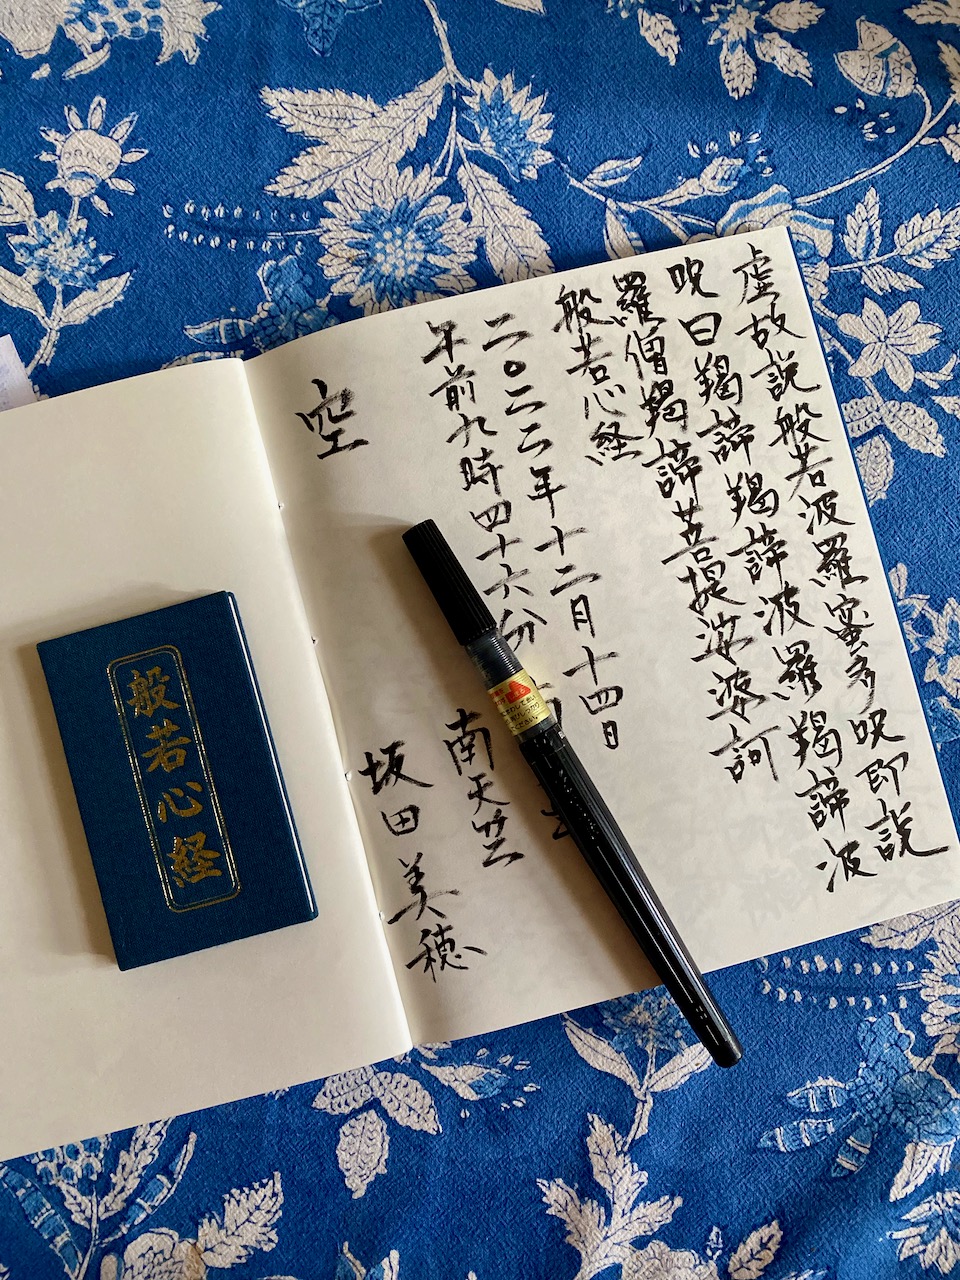 虚故説般若波羅蜜多呪即説
呪曰羯諦羯諦波羅羯諦波
羅僧羯諦菩提娑婆訶
般若心経
二〇二二年十二月十四日
午前九時四十六分
南天竺
坂田美穂
空
般若心経